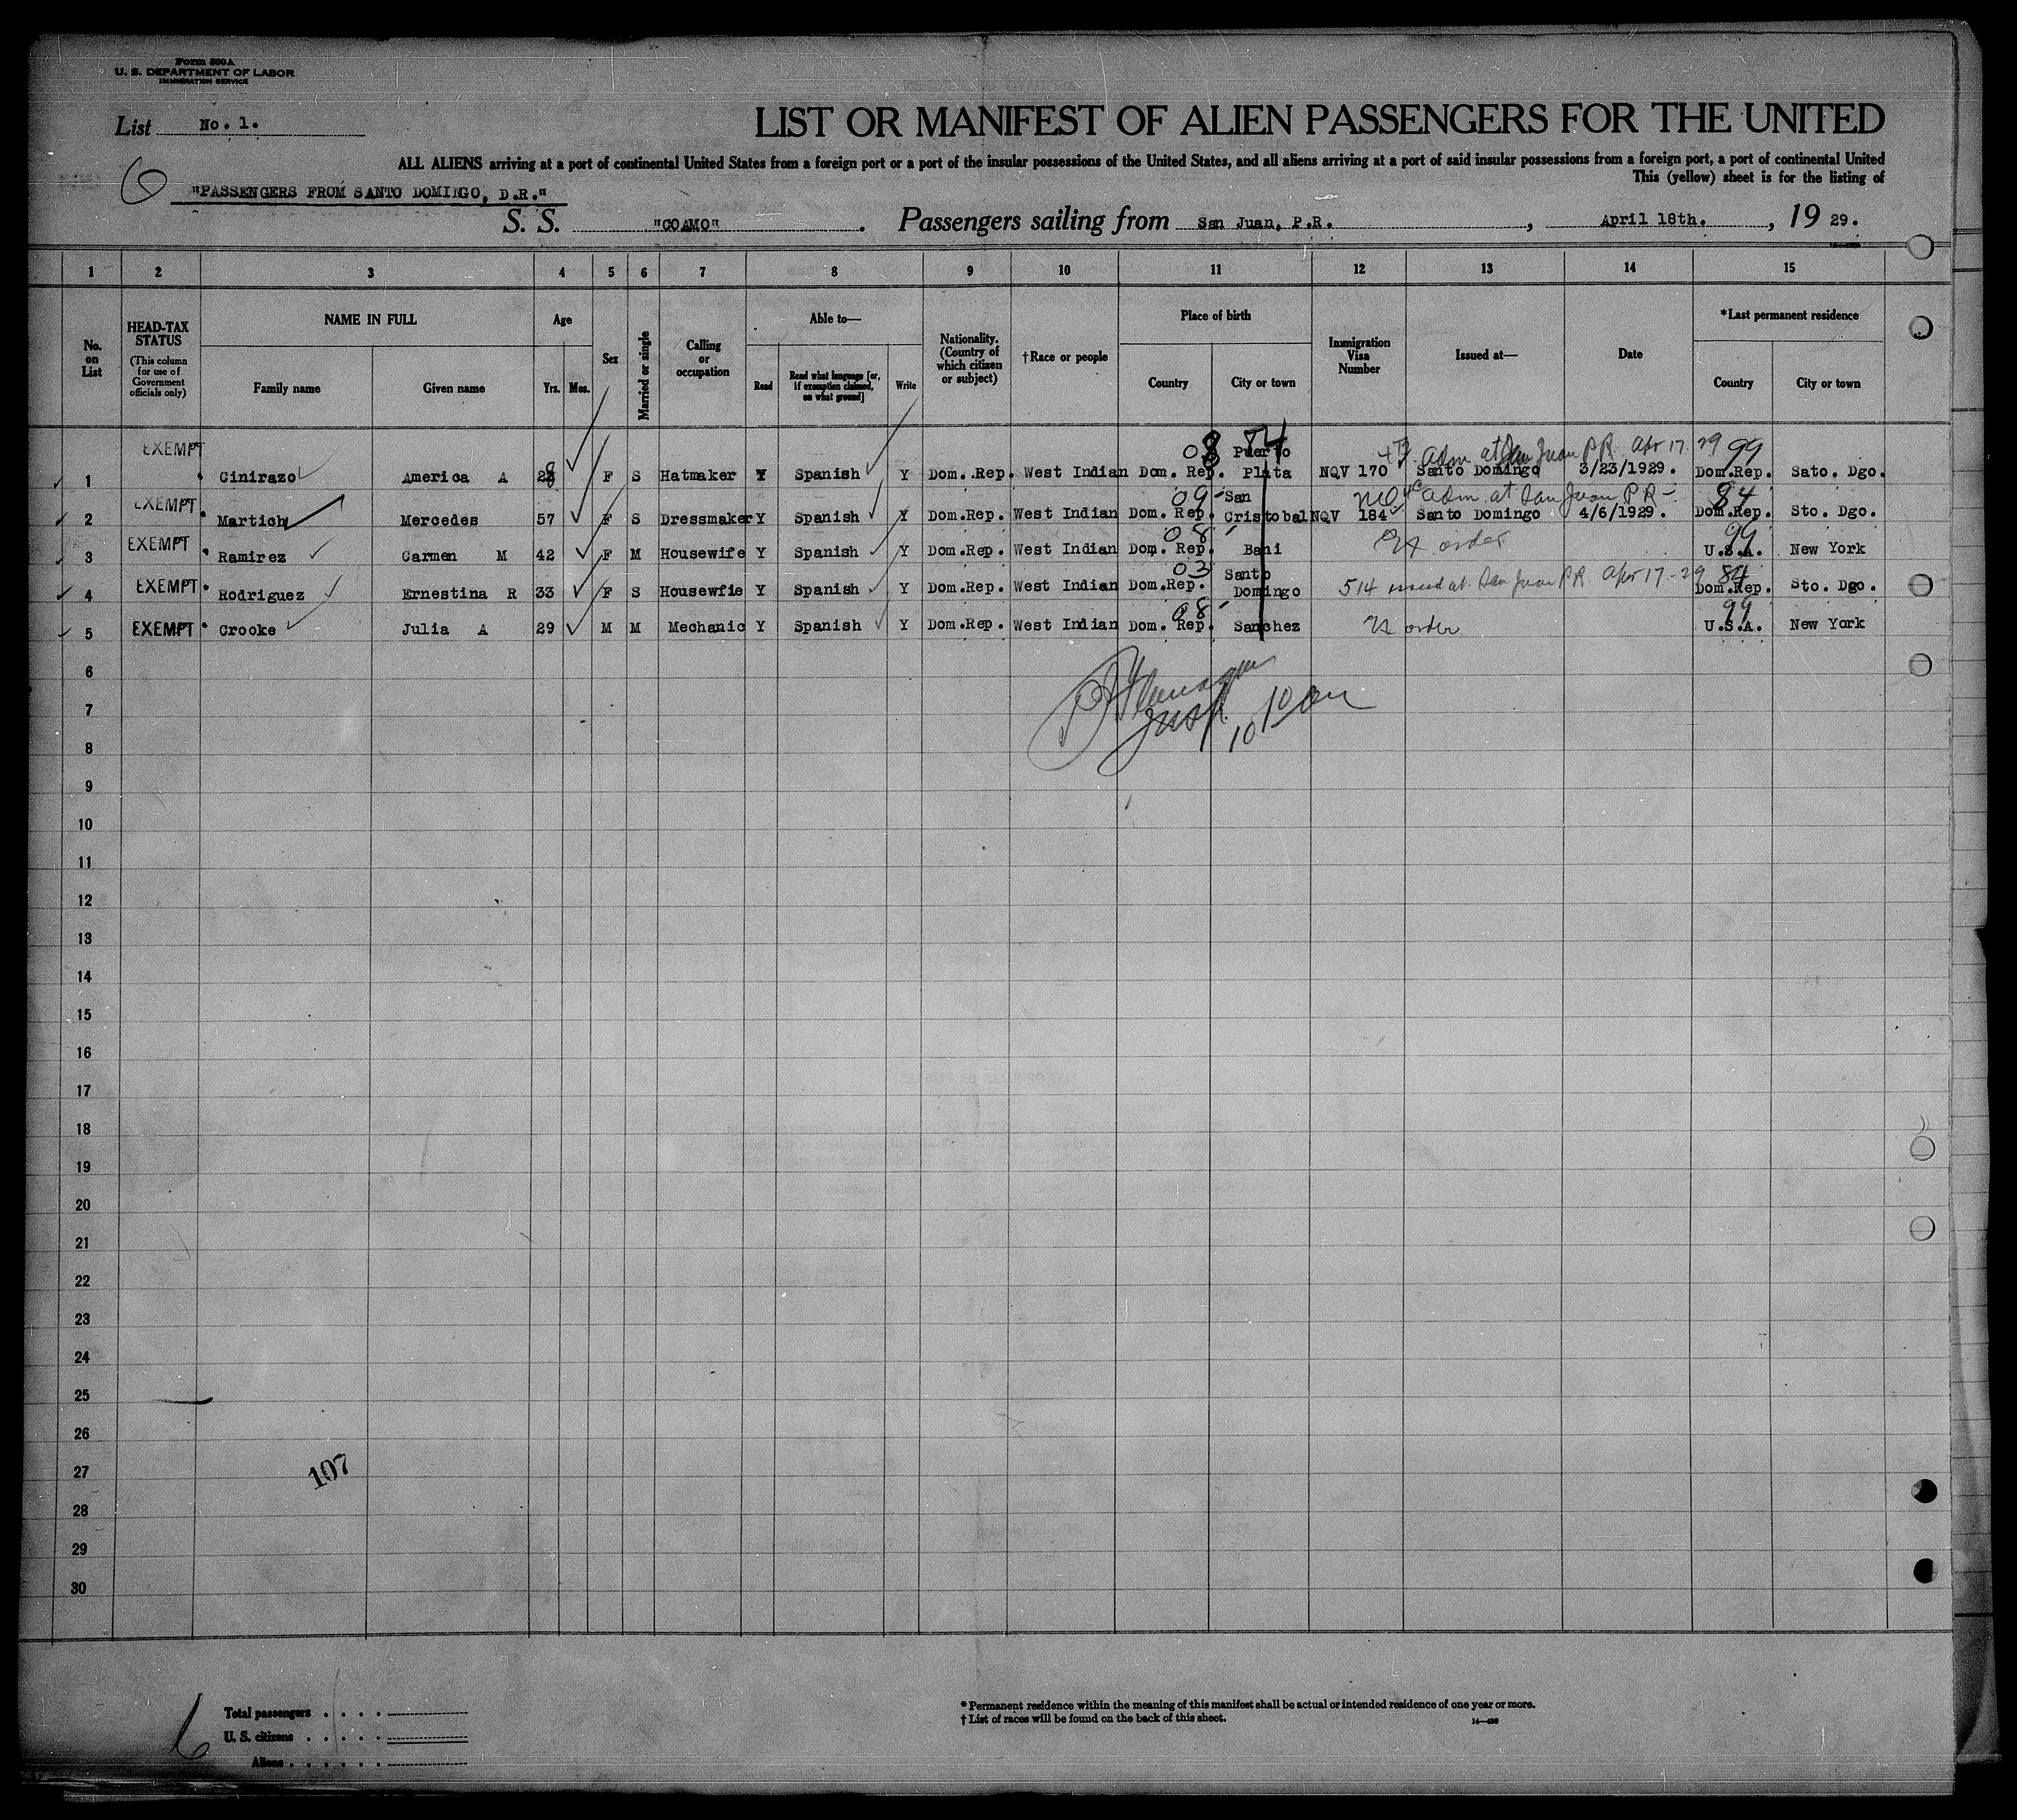 Form 500A
U. S. DEPARTMENT OF LABOR
IMMIGRATION SERVICE
List No. 1.
LIST OR MANIFEST OF ALIEN PASSENGERS FOR THE UNITED
6
ALL ALIENS arriving at a port of continental United States from a foreign port or a port of the insular possessions of the United States, and all aliens arriving at a port of said insular possessions from a foreign port, a port of continental United
This (yellow) sheet is for the listing of
"PASSENGERS FROM SANTO DOMINGO, D.R."
S. S. "COAMO". Passengers sailing from San Juan, P.R., April 18th., 19 29.
1 2 3 4 5 6 7 8 9 10 11 12 13 14 15
No. on List
HEAD-TAX STATUS
(This column for use of Government officials only)
NAME IN FULL
Family name Given name
Age
Yrs. Mos.
Sex
Married or single
Calling or occupation
Able to—
Read
Read what language [or, if exemption claimed, on what ground]
Write
Nationality. (Country of which citizen or subject)
†Race or people
Place of birth
Country City or town
Immigration Visa Number
Issued at—
Date
*Last permanent residence
Country City or town
08 84 adm at San Juan PR. Apr 17. 29 99
1 EXEMPT Cinirazo America A 28 F S Hatmaker Y Spanish Y Dom.Rep. West Indian Dom. Rep. Puerto Plata NQV 170 Santo Domingo 3/23/1929. Dom.Rep. Sato. Dgo.
09 adm. at San Juan PR - 84
2 EXEMPT Martich Mercedes 57 F S Dressmaker Y Spanish Y Dom.Rep. West Indian Dom. Rep. San Cristobal NQV 184 Santo Domingo 4/6/1929. Dom.Rep. Sto. Dgo.
08 99
3 EXEMPT Ramirez Carmen M 42 F M Housewife Y Spanish Y Dom.Rep. West Indian Dom. Rep. Bani order U.S.A. New York
03 84
4 EXEMPT Rodriguez Ernestina R 33 F S Housewfie Y Spanish Y Dom.Rep. West Indian Dom.Rep. Santo Domingo 514 issued at San Juan PR. Apr 17-29 Dom.Rep. Sto. Dgo.
08 99
5 EXEMPT Crooke Julia A 29 M M Mechanic Y Spanish Y Dom.Rep. West Indian Dom. Rep. Sanchez order U.S.A. New York
6
7
8
9
10
11
12
13
14
15
16
17
18
19
20
21
22
23
24
25
26
27
28
29
30
107
6
Total passengers
U. S. citizens
Aliens
* Permanent residence within the meaning of this manifest shall be actual or intended residence of one year or more.
† List of races will be found on the back of this sheet.